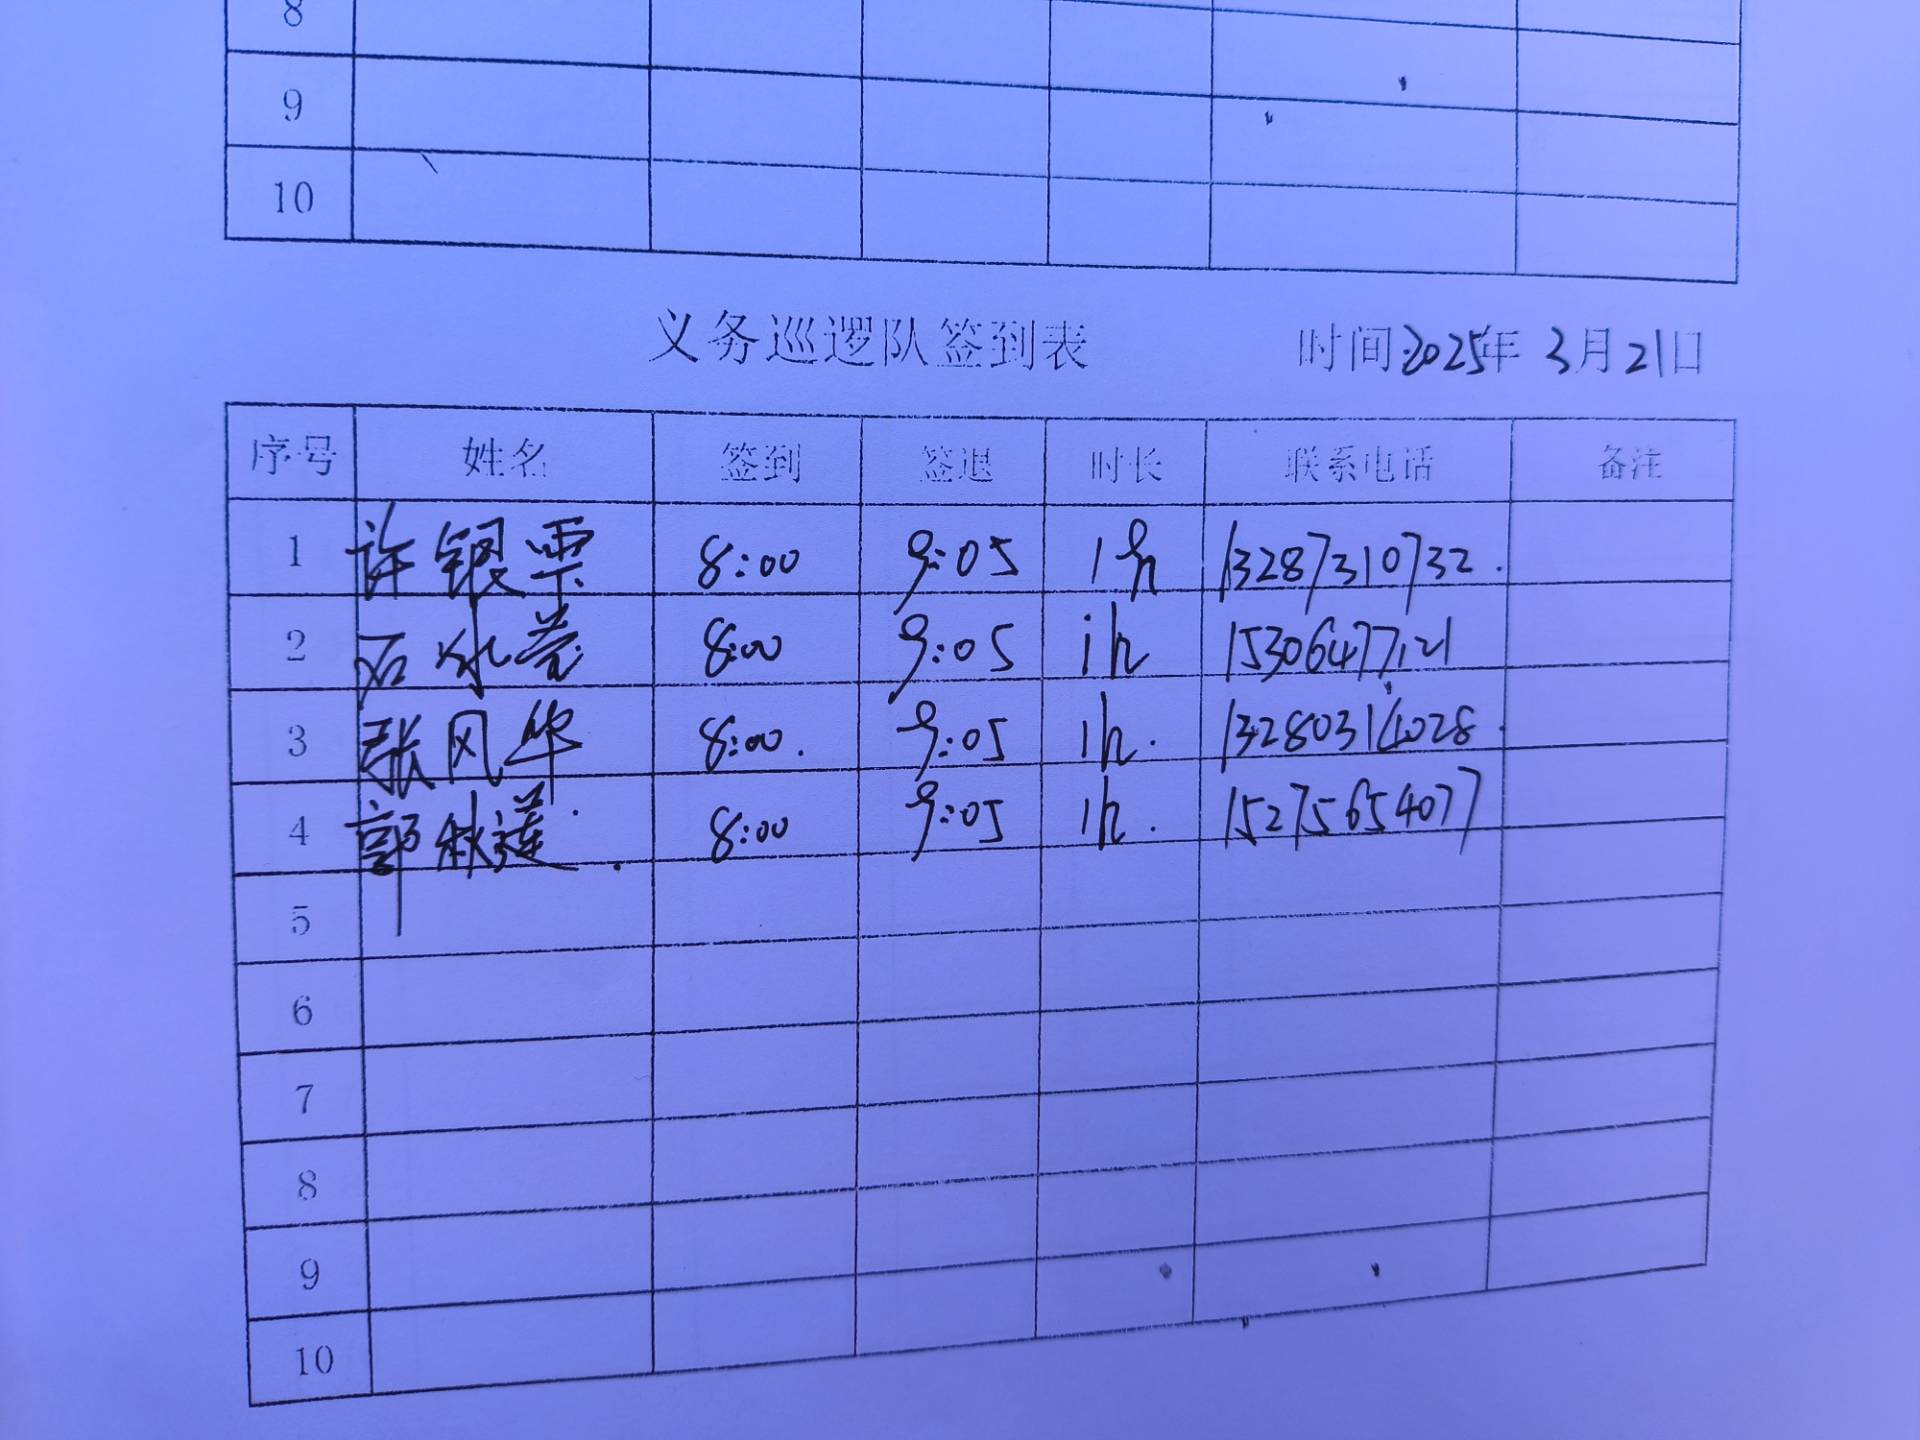 8
9
10
义务巡逻队签到表 时间2025年 3月21日
序号 姓名 签到 签退 时长 联系电话 备注
1 许银票 8:00 9:05 1h 13287310732.
2 石水 8:00 9:05 1h 15306477121
3 张风华 8:00. 9:05 1h. 13280314028.
4 郭秋莲. 8:00 9:05 1h. 15275654077
5
6
7
8
9
10